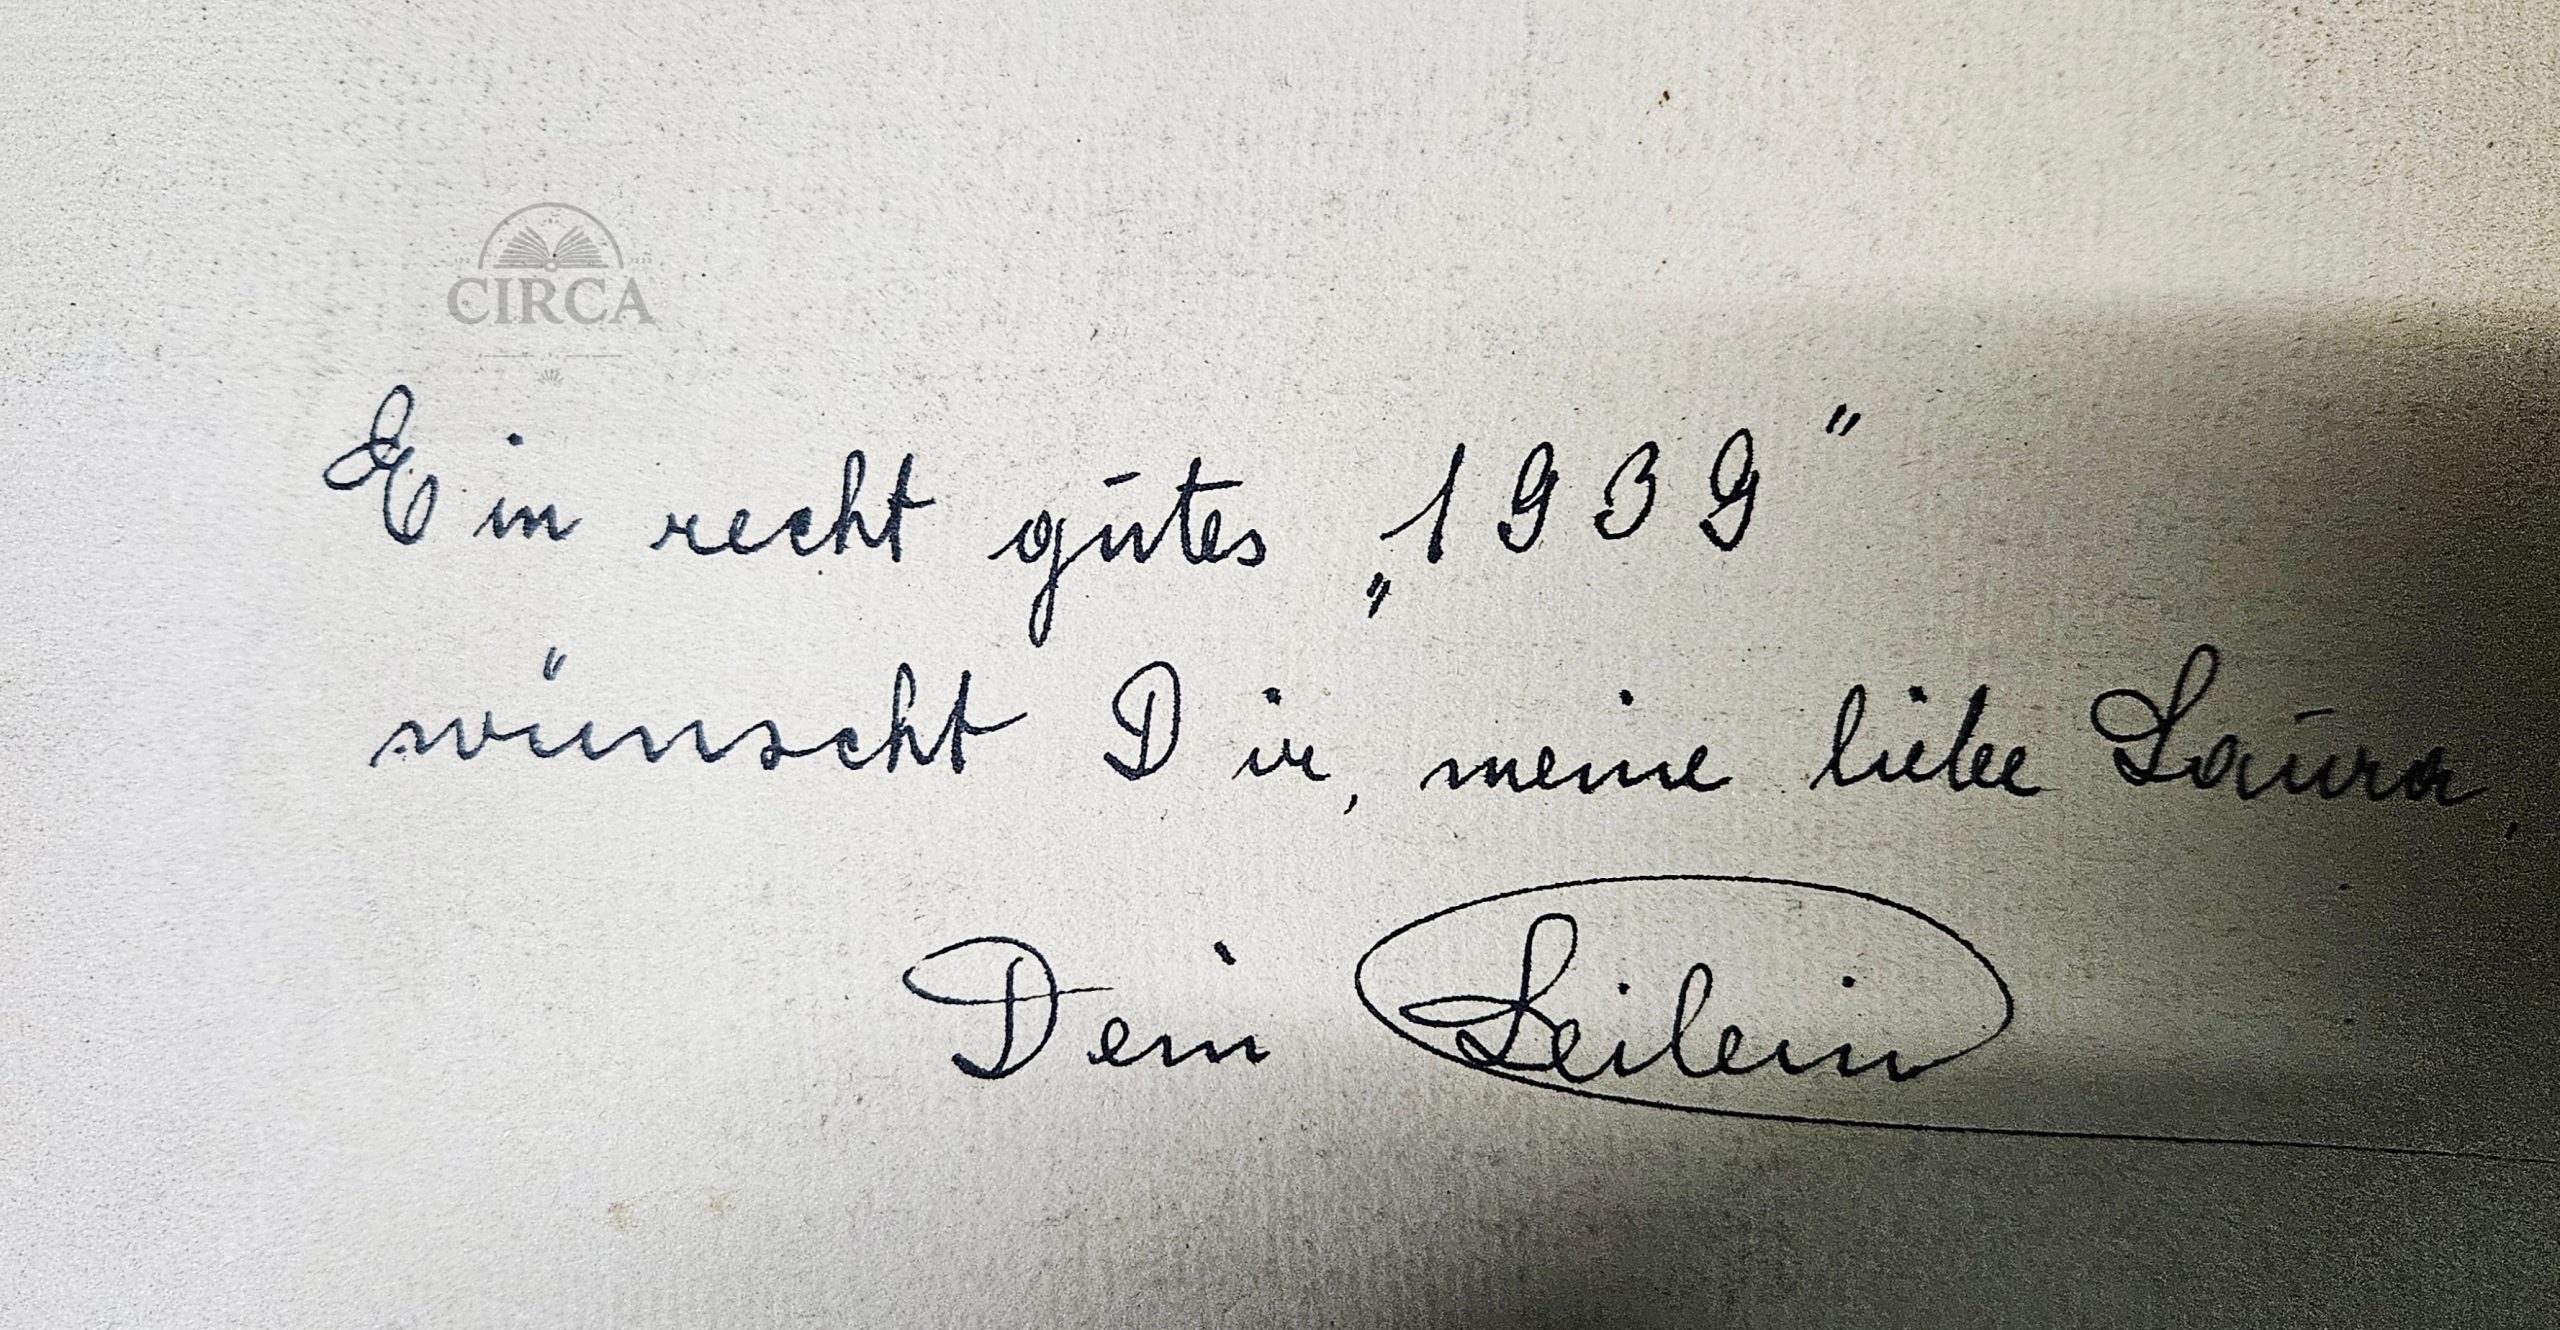 CIRCA
Ein recht gutes „1939“
wünscht Dir, meine liebe Laura,
Dein Leilein